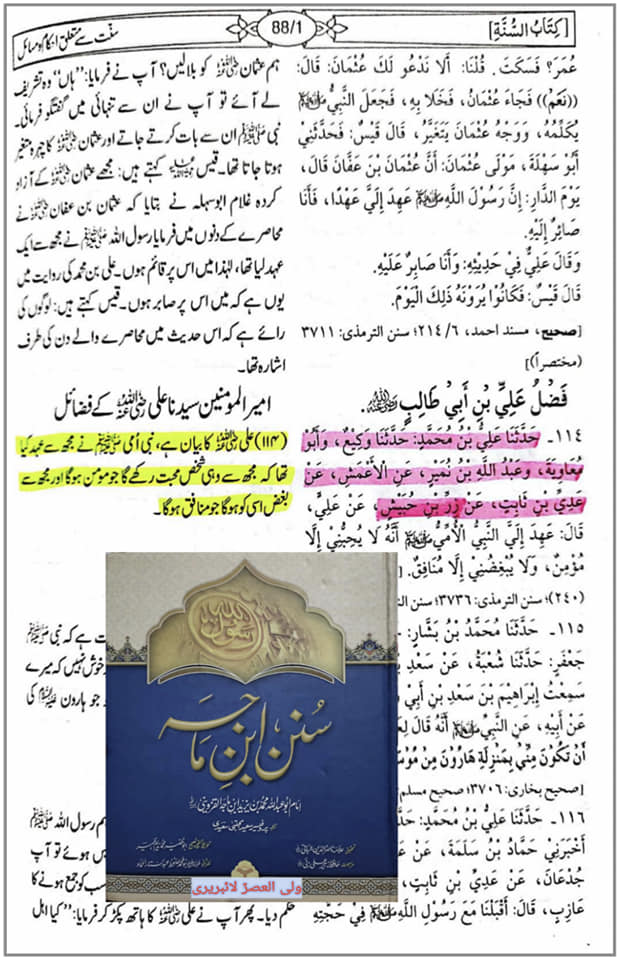 سنت سے متعلق احکام و مسائل
88/1
[كِتَابُ السُّنَّةِ]
عُمَرَ؟ فَسَكَتَ. قُلْنَا: أَلَا نَدْعُو لَكَ عُثْمَانَ: قَالَ:
((نَعَمْ)) فَجَاءَ عُثْمَانُ، فَخَلَا بِهِ، فَجَعَلَ النَّبِيُّ ﷺ
يُكَلِّمُهُ، وَوَجْهُ عُثْمَانَ يَتَغَيَّرُ، قَالَ قَيْسٌ: فَحَدَّثَنِي
أَبُو سَهْلَةَ، مَوْلَى عُثْمَانَ: أَنَّ عُثْمَانَ بْنَ عَفَّانَ قَالَ،
يَوْمَ الدَّارِ: إِنَّ رَسُولَ اللَّهِ ﷺ عَهِدَ إِلَيَّ عَهْدًا، فَأَنَا
صَائِرٌ إِلَيْهِ.
وَقَالَ عَلِيٌّ فِي حَدِيثِهِ: وَأَنَا صَابِرٌ عَلَيْهِ.
قَالَ قَيْسٌ: فَكَانُوا يُرَوْنَهُ ذَلِكَ الْيَوْمَ.
[صحيح، مسند احمد، ٦/٢١٤؛ سنن الترمذى: ٣٧١١
(مختصراً)]
فَضْلُ عَلِيِّ بْنِ أَبِي طَالِبٍ رضي الله عنه.
١١٤- حَدَّثَنَا عَلِيُّ بْنُ مُحَمَّدٍ: حَدَّثَنَا وَكِيعٌ، وَأَبُو
مُعَاوِيَةَ، وَعَبْدُ اللَّهِ بْنُ نُمَيْرٍ، عَنِ الْأَعْمَشِ، عَنْ
عَدِيِّ بْنِ ثَابِتٍ، عَنْ زِرِّ بْنِ حُبَيْشٍ، عَنْ عَلِيٍّ،
قَالَ: عَهِدَ إِلَيَّ النَّبِيُّ الْأُمِّيُّ ﷺ أَنَّهُ لَا يُحِبُّنِي إِلَّا
مُؤْمِنٌ، وَلَا يُبْغِضُنِي إِلَّا مُنَافِقٌ. [
(٢٤٠)؛ سنن الترمذى: ٣٧٣٦؛ سنن
١١٥- حَدَّثَنَا مُحَمَّدُ بْنُ بَشَّارٍ:
جَعْفَرٍ: حَدَّثَنَا شُعْبَةُ، عَنْ سَعْدِ
سَمِعْتُ إِبْرَاهِيمَ بْنَ سَعْدِ بْنِ أَبِي
عَنْ أَبِيهِ، عَنِ النَّبِيِّ ﷺ أَنَّهُ قَالَ
أَنْ تَكُونَ مِنِّي بِمَنْزِلَةِ هَارُونَ مِنْ
صحيح بخارى: ٣٧٠٦؛ صحيح مسلم
١١٦- حَدَّثَنَا عَلِيُّ بْنُ مُحَمَّدٍ:
أَخْبَرَنِي حَمَّادُ بْنُ سَلَمَةَ، عَنْ
جُدْعَانَ، عَنْ عَدِيِّ بْنِ ثَابِتٍ،
عَازِبٍ، قَالَ: أَقْبَلْنَا مَعَ رَسُولِ اللَّهِ ﷺ فِي حَجَّتِهِ
ہم عثمان رضی اللہ عنہ کو بلا لیں؟ آپ نے فرمایا: ’’ہاں‘‘ وہ تشریف
لے آئے تو آپ نے ان سے تنہائی میں گفتگو فرمائی۔
نبی ﷺ ان سے بات کرتے جاتے اور عثمان رضی اللہ عنہ کا چہرہ متغیر
ہوتا جاتا تھا۔ قیس کہتے ہیں: مجھے عثمان رضی اللہ عنہ کے آزاد
کردہ غلام ابوسہلہ نے بتایا کہ عثمان بن عفان رضی اللہ عنہ نے
محاصرے کے دنوں میں فرمایا رسول اللہ ﷺ نے مجھ سے ایک
عہد لیا تھا، لہٰذا میں اس پر قائم ہوں۔ علی بن محمد کی روایت میں
یوں ہے کہ میں اس پر صابر ہوں۔ قیس کہتے ہیں: لوگوں کی
رائے ہے کہ اس حدیث میں محاصرے والے دن کی طرف
اشارہ تھا۔
امیر المومنین سیدنا علی رضی اللہ عنہ کے فضائل
(۱۱۴) علی رضی اللہ عنہ کا بیان ہے، نبی اُمی ﷺ نے مجھ سے عہد کیا
تھا کہ مجھ سے وہی شخص محبت رکھے گا جو مومن ہوگا اور مجھ سے
بغض اسی کو ہوگا جو منافق ہوگا۔
ہے کہ نبی ﷺ
خوش نہیں کہ میرے
جو ہارون علیہ السلام کی
ہم رسول اللہ
ہوئے تو آپ
سب کو جمع ہونے کا
حکم دیا۔ پھر آپ نے علی رضی اللہ عنہ کا ہاتھ پکڑ کر فرمایا: ’’کیا اہل
سُنن ابنِ مَاجہ
امام ابو عبداللہ محمد بن یزید ابن ماجہ القزوینی
ولی العصرؑ لائبریری